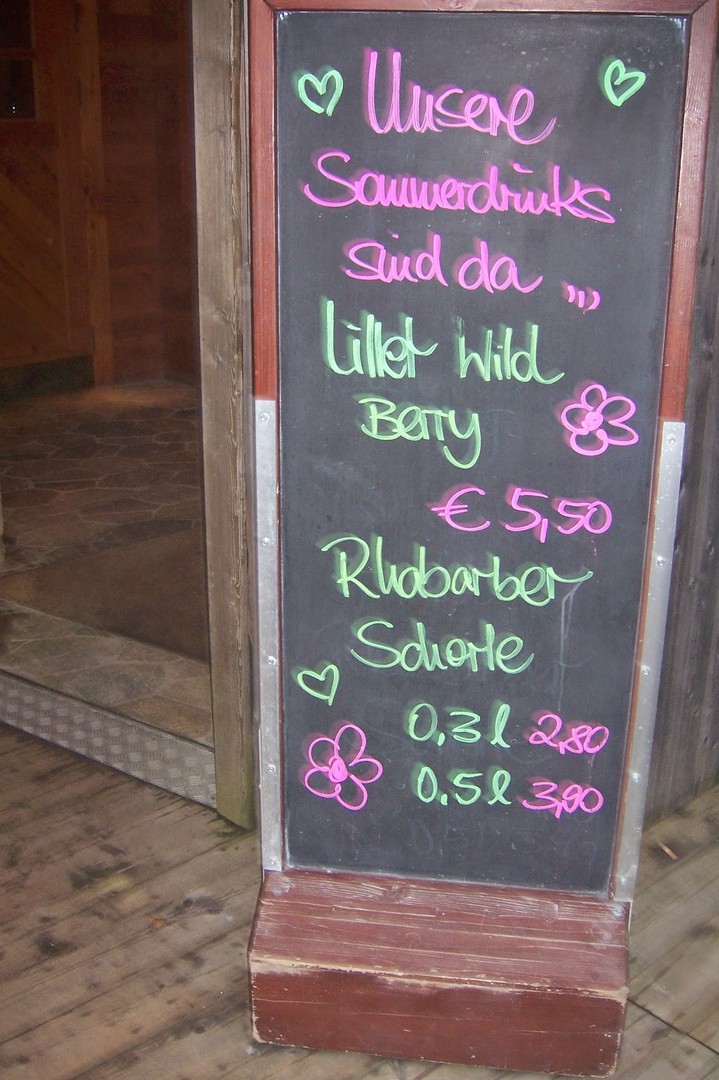 Unsere
Sommerdrinks
sind da ,,,
Lillet Wild
Berry
€ 5,50
Rhabarber
Schorle
0,3 l 2,80
0,5 l 3,90